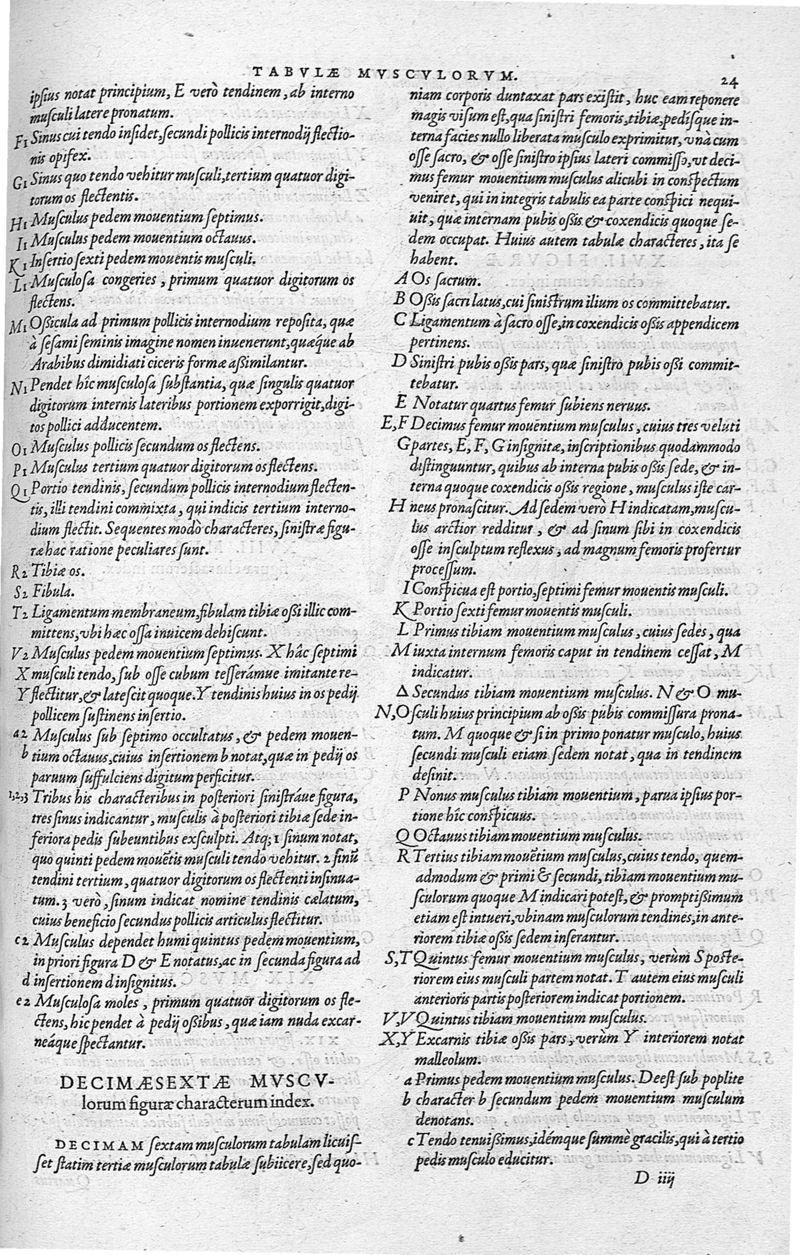 TABVLÆ MVSCVLORVM.
24
ipsius notat principium, E verò tendinem, ab interno
musculi latere pronatum.
F1 Sinus cui tendo insidet, secundi pollicis internodij flectio-
nis opifex.
G1 Sinus quo tendo vehitur musculi, tertium quatuor digi-
torum os flectentis.
H1 Musculus pedem mouentium septimus.
I1 Musculus pedem mouentium octauus.
K1 Insertio sexti pedem mouentis musculi.
L1 Musculosa congeries, primum quatuor digitorum os
flectens.
M1 Ossicula ad primum pollicis internodium reposita, quæ
à sesami seminis imagine nomen inuenerunt, quæque ab
Arabibus dimidiati ciceris formæ assimilantur.
N1 Pendet hic musculosa substantia, quæ singulis quatuor
digitorum internis lateribus portionem exporrigit, digi-
tos pollici adducentem.
O1 Musculus pollicis secundum os flectens.
P1 Musculus tertium quatuor digitorum os flectens.
Q1 Portio tendinis, secundum pollicis internodium flecten-
tis, illi tendini commixta, qui indicis tertium interno-
dium flectit. Sequentes modò characteres, sinistræ figu-
ræ hac ratione peculiares sunt.
R2 Tibiæ os.
S2 Fibula.
T2 Ligamentum membraneum, fibulam tibiæ ossi illic com-
mittens, vbi hæc ossa inuicem dehiscunt.
V2 Musculus pedem mouentium septimus. X hâc septimi
X musculi tendo, sub osse cubum tesserámue imitante re-
Y flectitur, & latescit quoque. Y tendinis huius in os pedij
pollicem sustinens insertio.
a2 Musculus sub septimo occultatus, & pedem mouen-
b tium octauus, cuius insertionem b notat, quæ in pedij os
paruum suffulciens digitum perficitur.
1,2,3 Tribus his characteribus in posteriori sinistráue figura,
tres sinus indicantur, musculis à posteriori tibiæ sede in-
feriora pedis subeuntibus exsculpti. Atq; 1 sinum notat,
quo quinti pedem mouẽtis musculi tendo vehitur. 2 sinũ
tendini tertium, quatuor digitorum os flectenti insinua-
tum. 3 verò, sinum indicat nomine tendinis cælatum,
cuius beneficio secundus pollicis articulus flectitur.
c2 Musculus dependet humi quintus pedem mouentium,
in priori figura D & E notatus, ac in secunda figura ad
d insertionem d insignitus.
e2 Musculosa moles, primum quatuor digitorum os fle-
ctens, hic pendet à pedij ossibus, quæ iam nuda excar-
neáque spectantur.
DECIMÆSEXTÆ MVSCV-
lorum figuræ characterum index.
DECIMAM sextam musculorum tabulam licuis-
set statim tertiæ musculorum tabulæ subiicere, sed quo-
niam corporis duntaxat pars existit, huc eam reponere
magis visum est, qua sinistri femoris, tibiæ, pedisque in-
terna facies nullo liberata musculo exprimitur, vnà cum
osse sacro, & osse sinistro ipsius lateri commisso, vt deci-
mus femur mouentium musculus alicubi in conspectum
veniret, qui in integris tabulis ea parte conspici nequi-
uit, quæ internam pubis ossis & coxendicis quoque se-
dem occupat. Huius autem tabulæ characteres, ita se
habent.
A Os sacrum.
B Ossis sacri latus, cui sinistrum ilium os committebatur.
C Ligamentum à sacro osse, in coxendicis ossis appendicem
pertinens.
D Sinistri pubis ossis pars, quæ sinistro pubis ossi commit-
tebatur.
E Notatur quartus femur subiens neruus.
E,F Decimus femur mouentium musculus, cuius tres veluti
G partes, E, F, G insignitæ, inscriptionibus quodammodo
distinguuntur, quibus ab interna pubis ossis sede, & in-
terna quoque coxendicis ossis regione, musculus iste car-
H neus pronascitur. Ad sedem verò H indicatam, muscu-
lus arctior redditur, & ad sinum sibi in coxendicis
osse insculptum reflexus, ad magnum femoris profertur
processum.
I Conspicua est portio, septimi femur mouentis musculi.
K Portio sexti femur mouentis musculi.
L Primus tibiam mouentium musculus, cuius sedes, qua
M iuxta internum femoris caput in tendinem cessat, M
indicatur.
Δ Secundus tibiam mouentium musculus. N & O mu-
N,O sculi huius principium ab ossis pubis commissura prona-
tum. M quoque & si in primo ponatur musculo, huius
secundi musculi etiam sedem notat, qua in tendinem
desinit.
P Nonus musculus tibiam mouentium, parua ipsius por-
tione hîc conspicuus.
Q Octauus tibiam mouentium musculus.
R Tertius tibiam mouẽtium musculus, cuius tendo, quem-
admodum & primi & secundi, tibiam mouentium mu-
sculorum quoque M indicari potest, & promptissimum
etiam est intueri, vbinam musculorum tendines, in ante-
riorem tibiæ ossis sedem inserantur.
S,T Quintus femur mouentium musculus, verùm S poste-
riorem eius musculi partem notat. T autem eius musculi
anterioris partis posteriorem indicat portionem.
V,V Quintus tibiam mouentium musculus.
X,Y Excarnis tibiæ ossis pars, verùm Y interiorem notat
malleolum.
a Primus pedem mouentium musculus. Deest sub poplite
b character b secundum pedem mouentium musculum
denotans.
c Tendo tenuissimus, idémque summè gracilis, qui à tertio
pedis musculo educitur.
D iiij